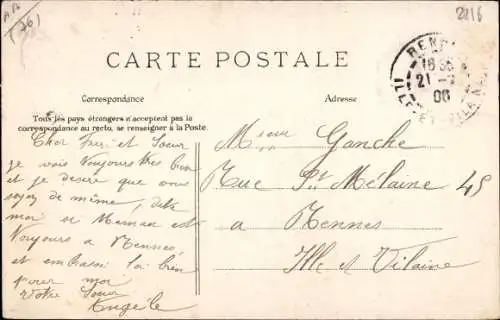 (76)
2216
CARTE POSTALE
RENNES
18 35
21 -
06
ILLE-ET-VILAINE
Correspondance
Adresse
Tous les pays étrangers n'acceptent pas la
correspondance au recto, se renseigner à la Poste.
Cher Frer et Soeur
je vais toujours tres bien
et je desire que vous
soyez de même, dite
moi si Maman est
toujours a Rennes
et embrassé la bien
pour moi
Votre Soeur
Angèle
Mr Ganche
Rue St Mélaine 45
a Rennes
Ille et Vilaine